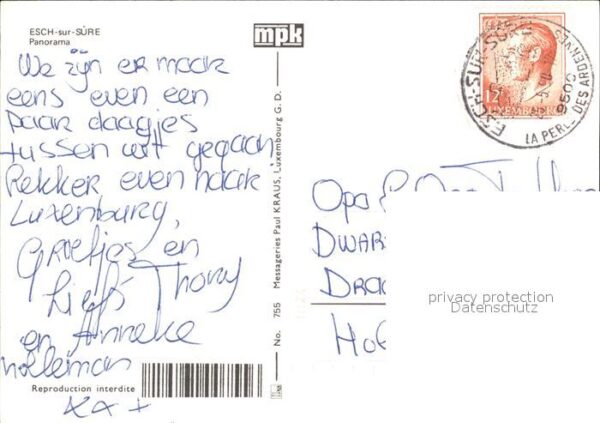 ESCH-sur-SÛRE
Panorama
mpk
We zijn er maar
eens even een
paar daagjes
tussen uit gegaan
Lekker even naar
Luxenburg,
Groetjes en
Liefs Thony
en Anneke
Holleman
x x +
Reproduction interdite
No. 755 Messageries Paul KRAUS, Luxembourg G. D.
12F
LUXEMBOURG
ESCH-SUR-SÛRE
9500
LA PERLE DES ARDENNES
Opa &
DWAR
DRAC
Hol
privacy protection
Datenschutz